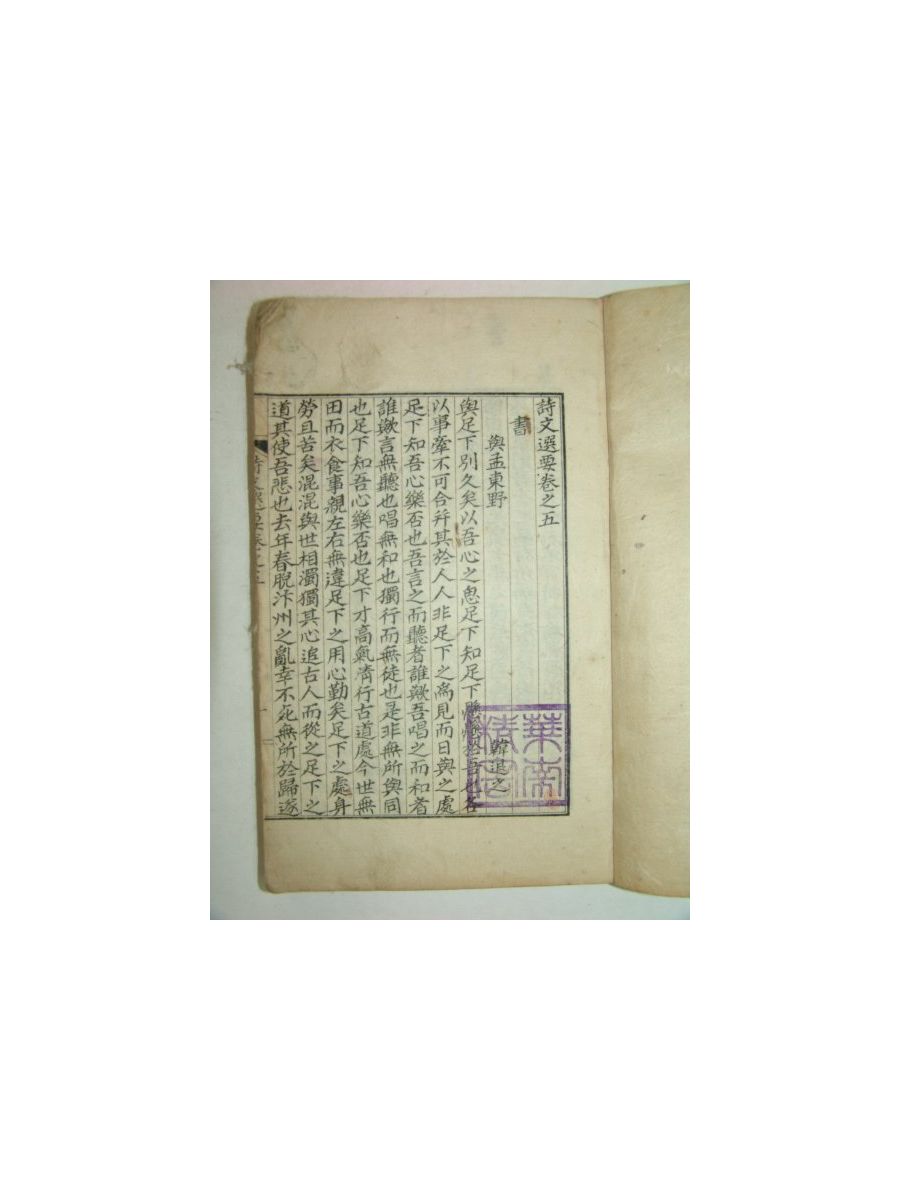 詩文選要卷之五
書
與孟東野 韓退之
與足下別久矣以吾心之思足下知足下懸懸於吾也各
以事牽不可合幷其於人人非足下之爲見而日與之處
足下知吾心樂否也吾言之而聽者誰歟吾唱之而和者
誰歟言無聽也唱無和也獨行而無徒也是非無所與同
也足下知吾心樂否也足下才高氣淸行古道處今世無
田而衣食事親左右無違足下之用心勤矣足下之處身
勞且苦矣混混與世相濁獨其心追古人而從之足下之
道其使吾悲也去年春脫汴州之亂幸不死無所於歸遂
詩文選要卷之五
華南